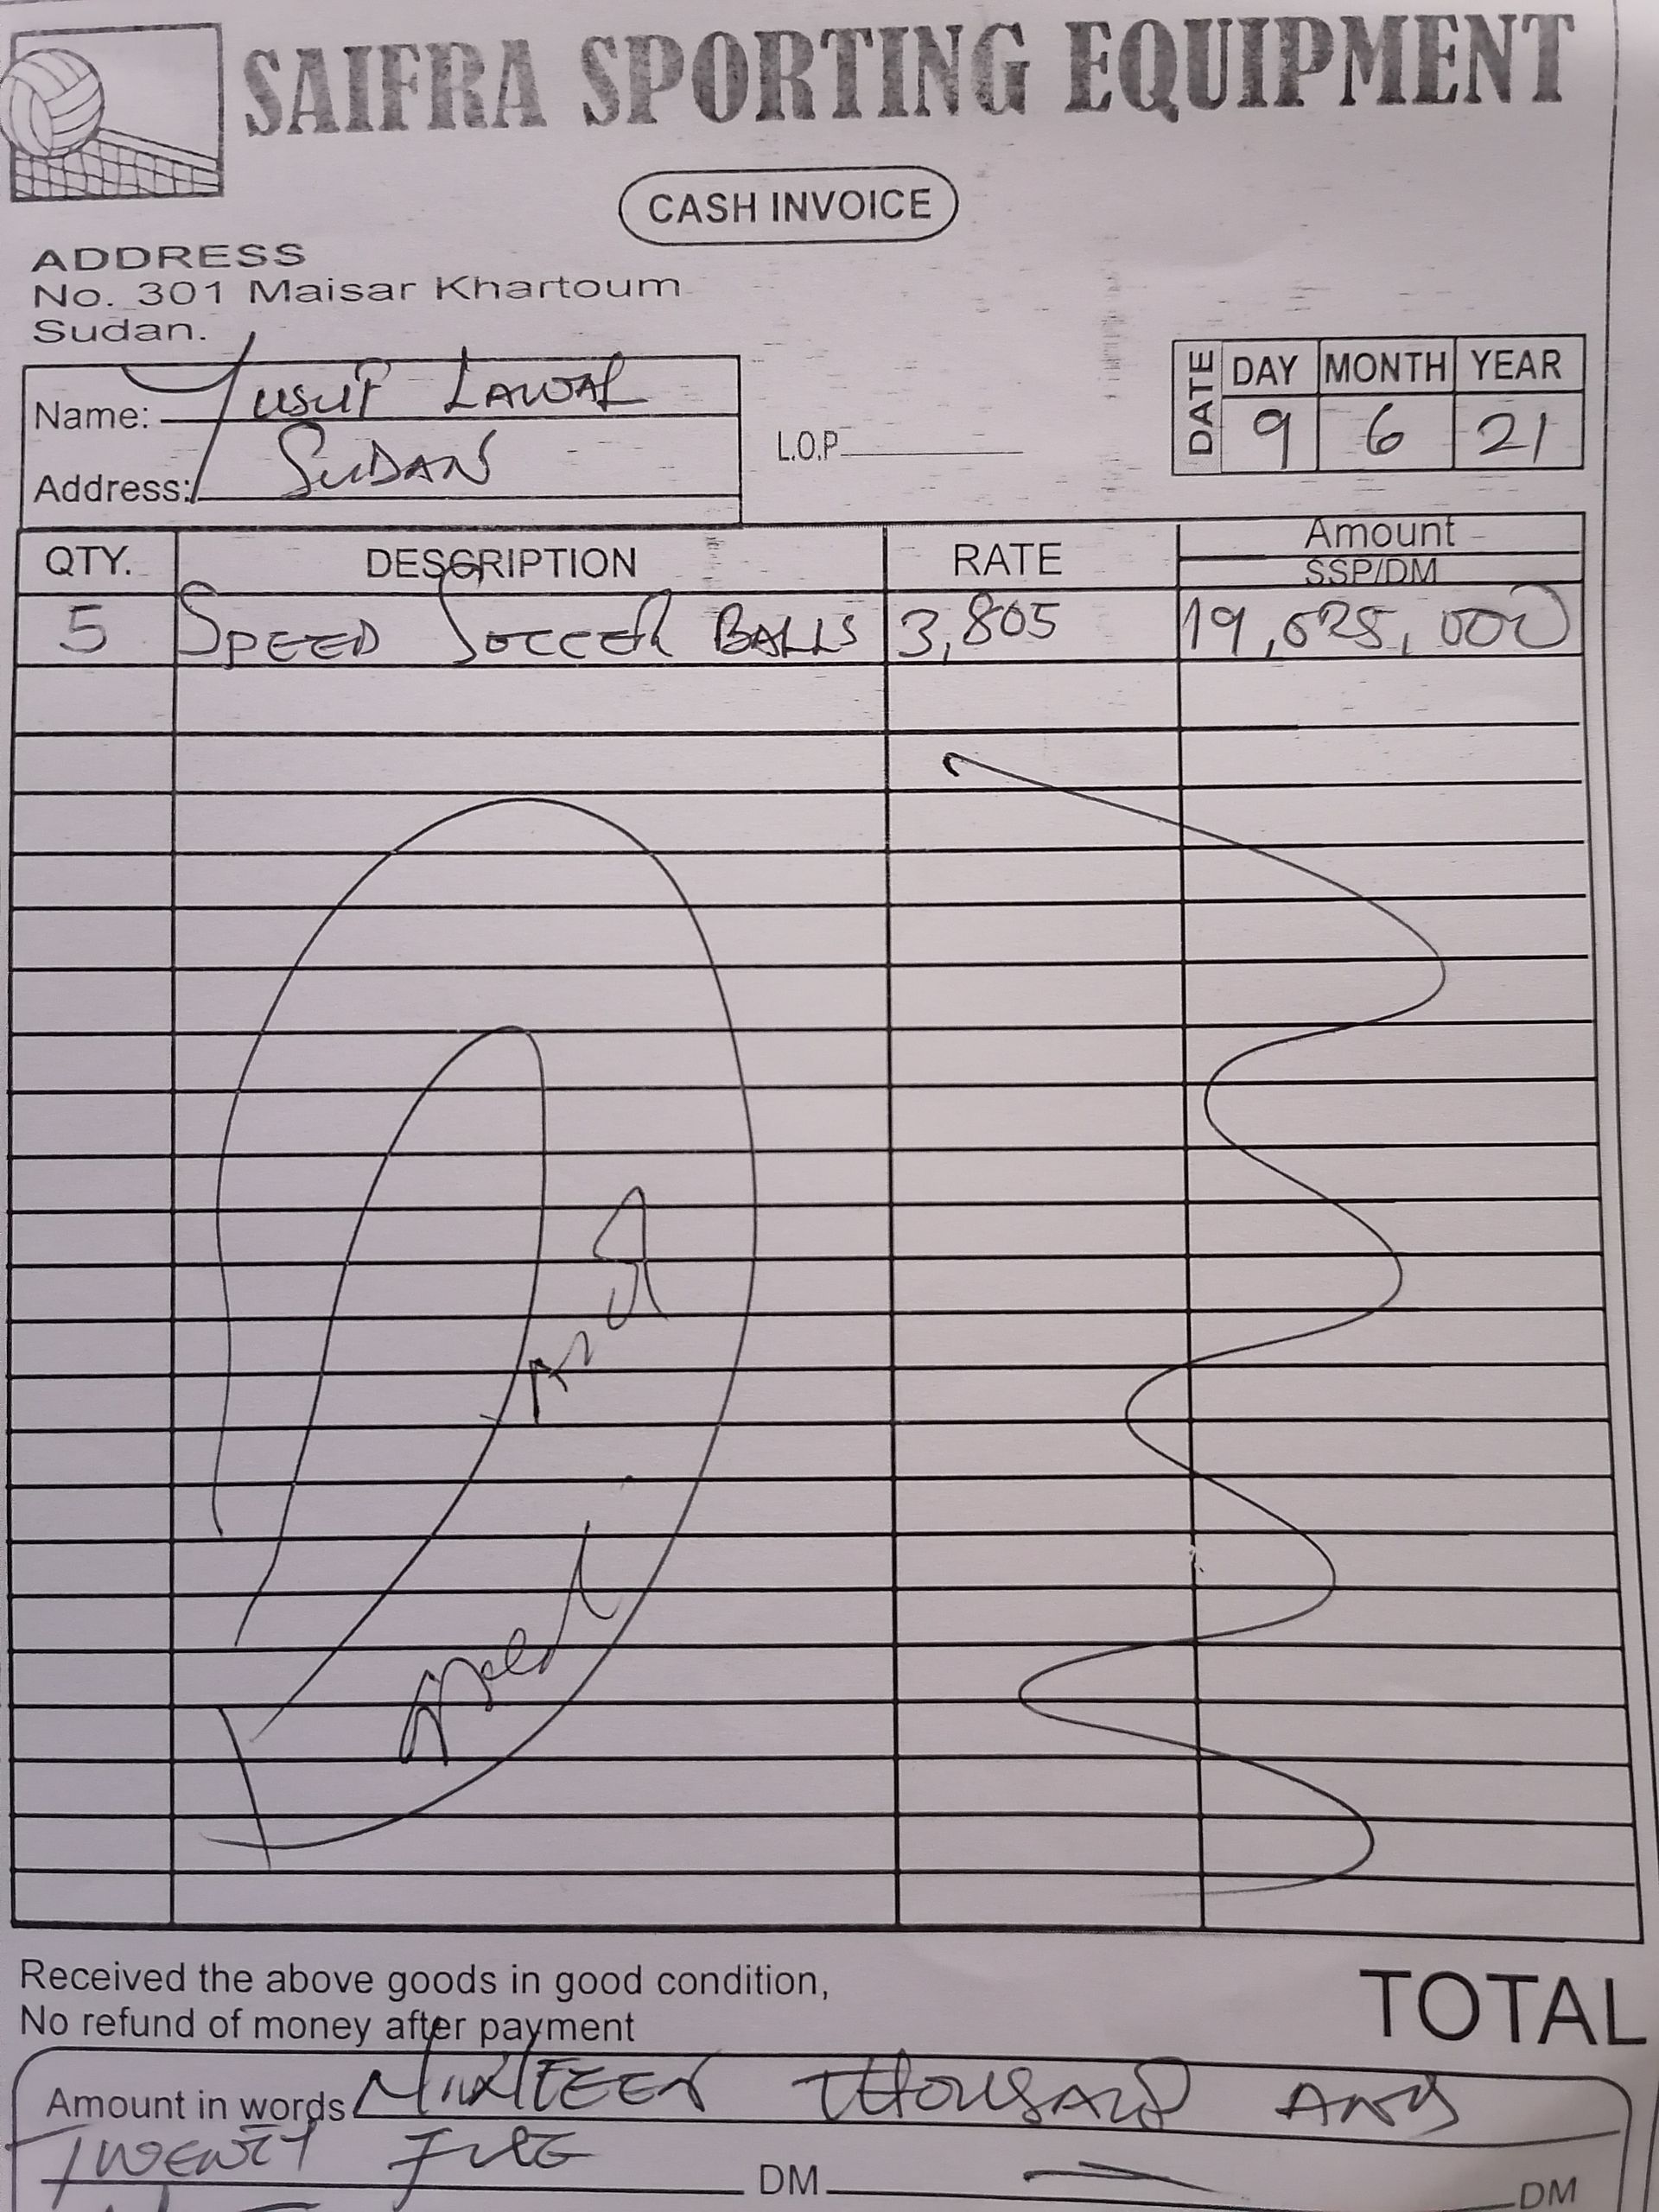 SAIFRA SPORTING EQUIPMENT
CASH INVOICE
ADDRESS
No. 301 Maisar Khartoum
Sudan.
Name: Yusuf Lawal
Address: SUDAN
L.O.P
DATE DAY MONTH YEAR
9 6 21
QTY. DESCRIPTION RATE Amount
SSP/DM
5 SPEED SOCCER BALLS 3,805 19,025,000
Received the above goods in good condition,
No refund of money after payment
TOTAL
Amount in words NINETEEN THOUSAND AND
TWENTY FIVE DM DM